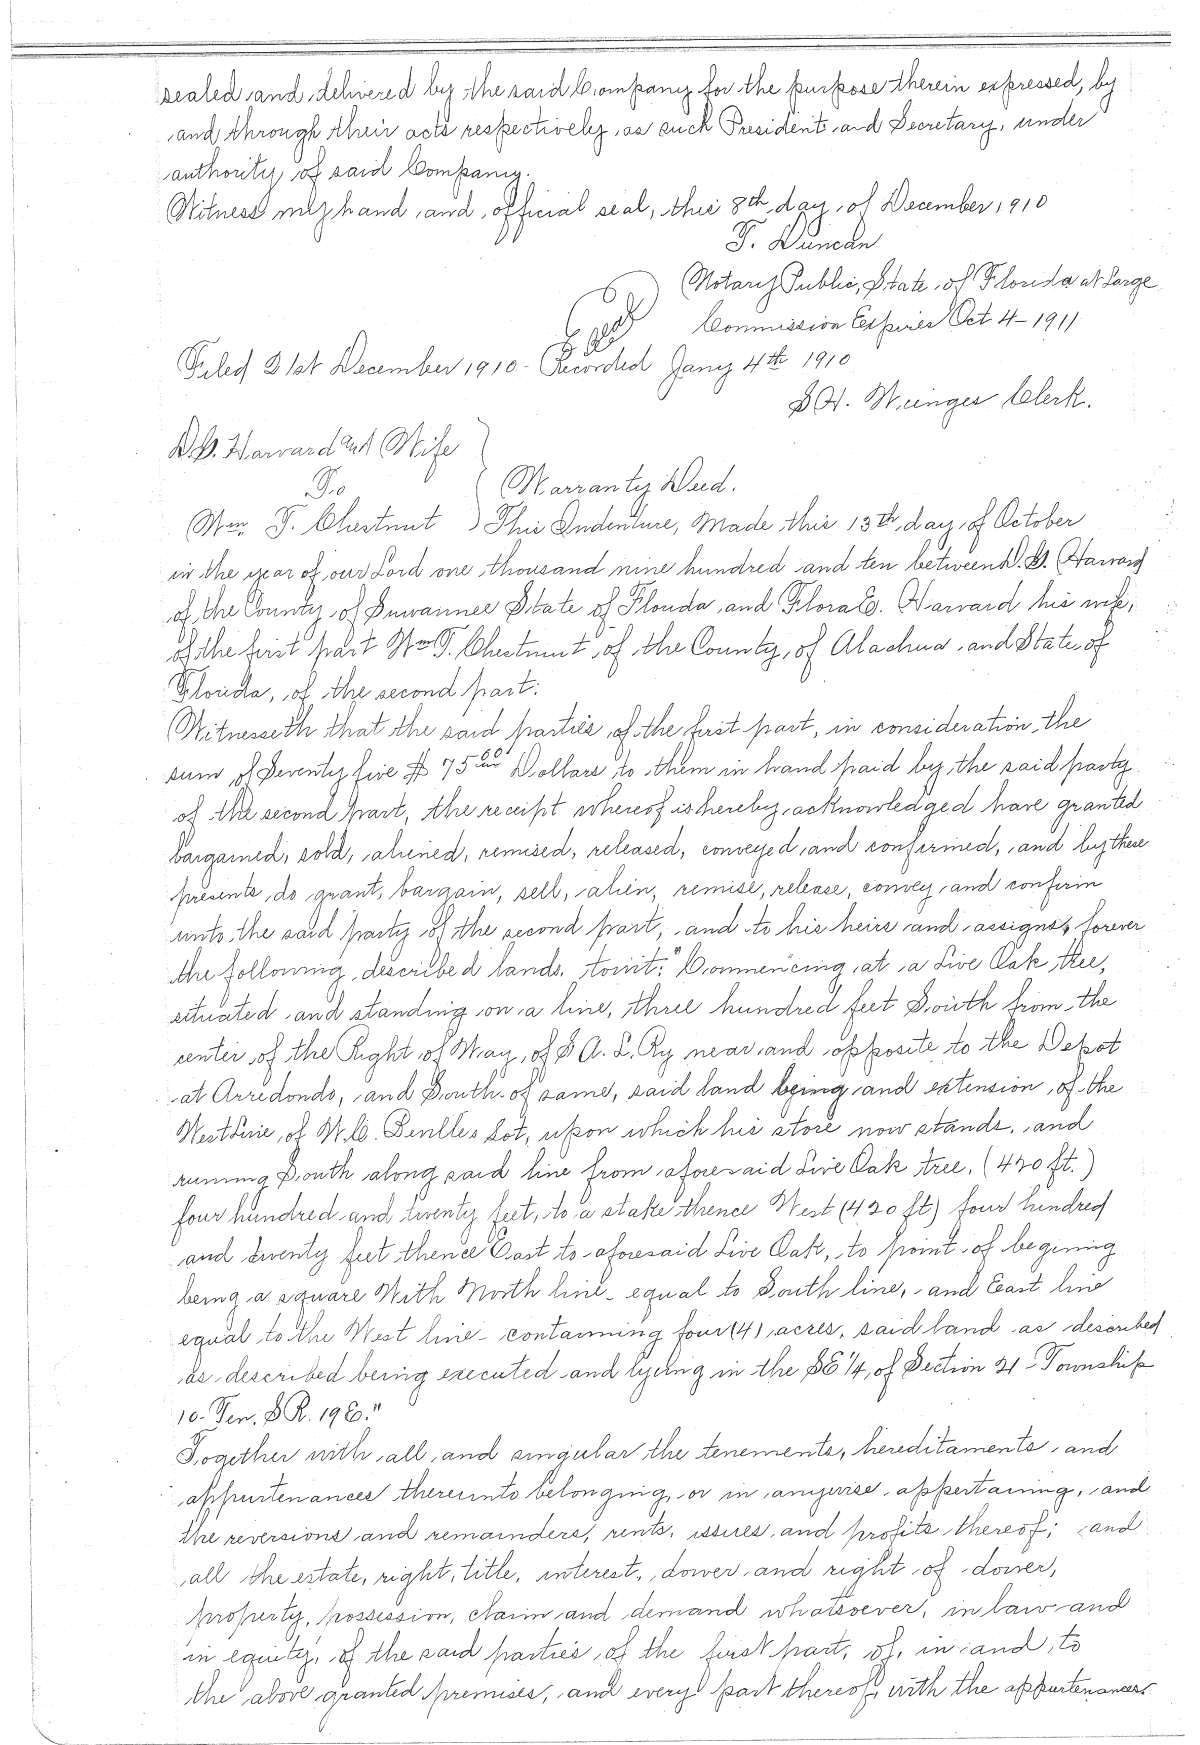 sealed and delivered by the said Company for the purpose therein expressed, by
and through their acts respectively, as such President and Secretary, under
authority of said Company.
Witness my hand and official seal, this 8th day of December 1910
T. Duncan
Notary Public, State of Florida at Large
Seal
Commission Expires Oct 4-1911
Filed 21st December 1910 - Recorded Jany 4th 1910
S.H. Wienges Clerk.
D.G. Harvard and Wife
To
Warranty Deed.
Wm. T. Chestnut ) This Indenture, Made this 13th day of October
in the year of our Lord one thousand nine hundred and ten between D.G. Harvard
of the County of Suwannee State of Florida and Flora E. Harvard his wife,
of the first part Wm T. Chestnut of the County of Alachua and State of
Florida, of the second part:
Witnesseth that the said parties of the first part, in consideration the
sum of Seventy five $ 75 00/100 Dollars to them in hand paid by the said party
of the second part, the receipt whereof is hereby acknowledged have granted
bargained, sold, aliened, remised, released, conveyed and confirmed, and by these
presents do grant, bargain, sell, alien, remise, release, convey and confirm
unto the said party of the second part, and to his heirs and assigns, forever
the following described lands, towit: "Commencing at a Live Oak tree,
situated and standing on a line, three hundred feet South from the
center of the Right of Way, of S A. L. Ry near and opposite to the Depot
at Arredondo, and South of same, said land being and extension of the
West Line of W.C. Bevilles Lot, upon which his store now stands, and
running South along said line from aforesaid Live Oak tree, (420 ft.)
four hundred and twenty feet, to a stake thence West (420 ft) four hundred
and twenty feet thence East to aforesaid Live Oak, to point of begining
being a square With North line equal to South line, and East line
equal to the West line - containing four (4) acres, said land as described
as described being executed and lyeing in the SE 1/4, of Section 21 - Township
10 - Ten. S R. 19 E."
Together with all and singular the tenements, hereditaments and
appurtenances thereunto belonging, or in anywise appertaining, and
the reversions and remainders, rents, issues and profits thereof; and
all the estate, right, title, interest, dower and right of dower,
property, possession, claim and demand whatsoever, in law and
in equity, of the said parties of the first part, of, in and to
the above granted premises, and every part thereof, with the appurtenances